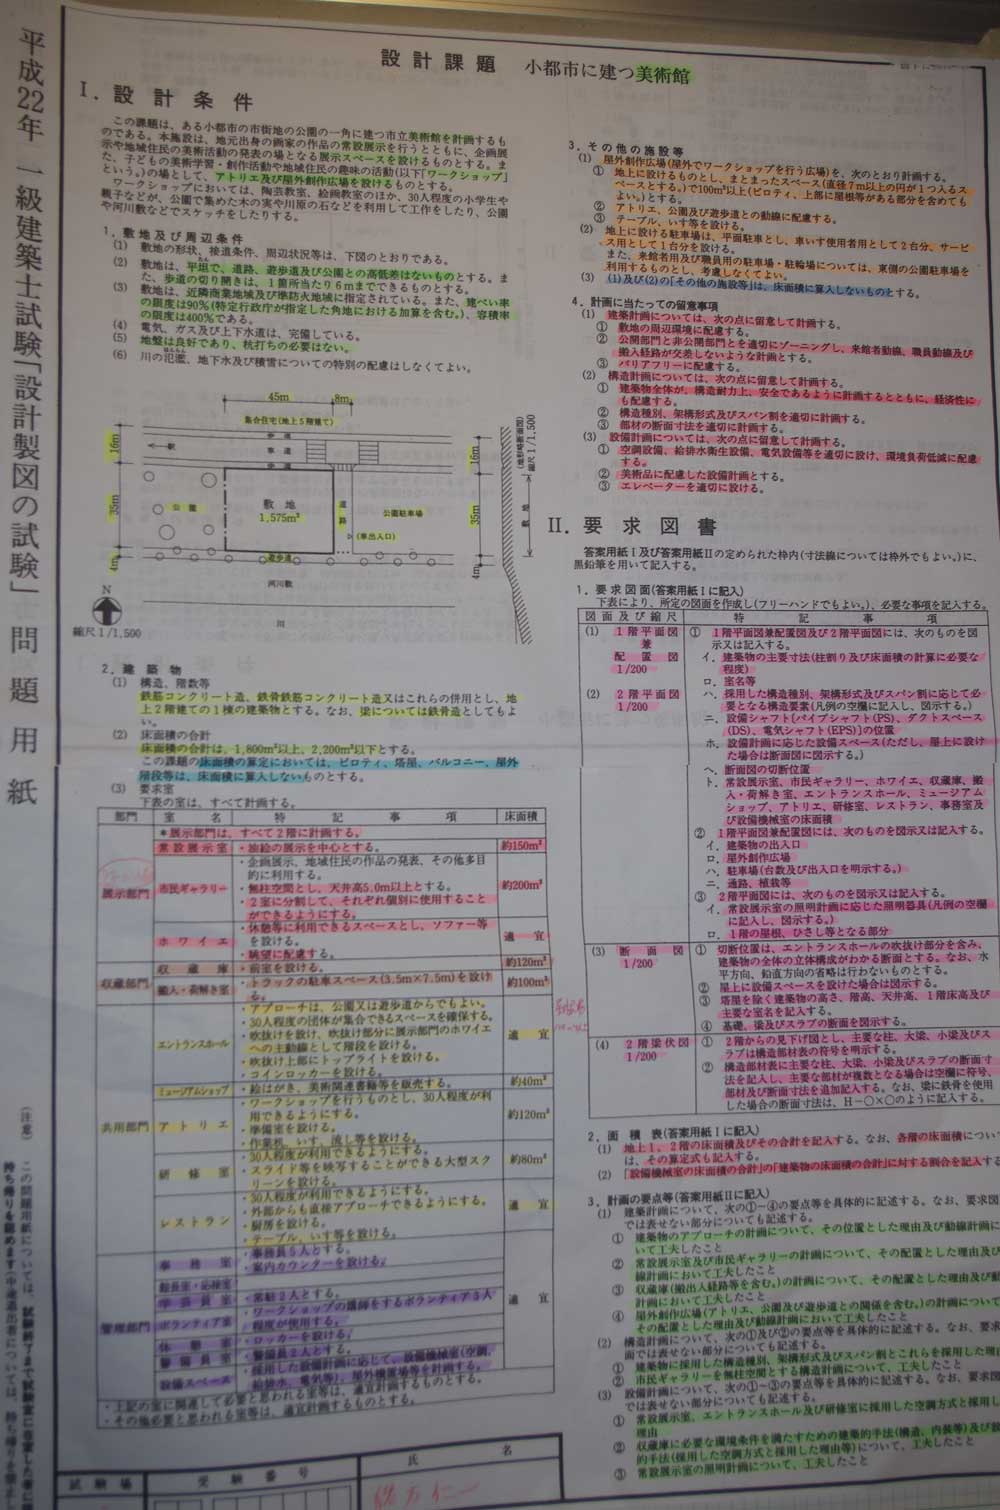 平成22年 一級建築士試験「設計製図の試験」 問題用紙
設計課題 小都市に建つ美術館
Ⅰ. 設計条件
この課題は、ある小都市の市街地の公園の一角に建つ市立美術館を計画するも
のである。本施設は、地元出身の画家の作品の常設展示を行うとともに、企画展
示や地域住民の美術活動の発表の場となる展示スペースを設けるものとする。ま
た、子どもの美術学習・創作活動や地域住民の趣味の活動(以下「ワークショップ」
という。)の場として、アトリエ及び屋外創作広場を設けるものとする。
ワークショップにおいては、陶芸教室、絵画教室のほか、30人程度の小学生や
親子などが、公園で集めた木の実や川原の石などを利用して工作をしたり、公園
や河川敷などでスケッチをしたりする。
1. 敷地及び周辺条件
(1) 敷地の形状、接道条件、周辺状況等は、下図のとおりである。
(2) 敷地は、平坦で、道路、遊歩道及び公園との高低差はないものとする。ま
た、歩道の切り開きは、1箇所当たり6mまでできるものとする。
(3) 敷地は、近隣商業地域及び準防火地域に指定されている。また、建ぺい率
の限度は90%(特定行政庁が指定した角地における加算を含む。)、容積率
の限度は400%である。
(4) 電気、ガス及び上下水道は、完備している。
(5) 地盤は良好であり、杭打ちの必要はない。
(6) 川の氾濫、地下水及び積雪についての特別の配慮はしなくてよい。
45m 8m
集合住宅(地上5階建て)
歩道
車道
歩道
駅
16m
35m
4m
公園
敷地
1,575m²
道路
公園駐車場
(車出入口)
遊歩道
河川敷
川
16m
35m
4m
敷地
(地形略断面図)
縮尺1/1,500
N
縮尺1/1,500
2. 建築物
(1) 構造、階数等
鉄筋コンクリート造、鉄骨鉄筋コンクリート造又はこれらの併用とし、地
上2階建ての1棟の建築物とする。なお、梁については鉄骨造としてもよ
い。
(2) 床面積の合計
床面積の合計は、1,800m²以上、2,200m²以下とする。
この課題の床面積の算定においては、ピロティ、塔屋、バルコニー、屋外
階段等は、床面積に算入しないものとする。
(3) 要求室
下表の室は、すべて計画する。
部門 室名 特記事項 床面積
*展示部門は、すべて2階に計画する。
展示部門
常設展示室 ・油絵の展示を中心とする。 約150m²
市民ギャラリー ・企画展示、地域住民の作品の発表、その他多目
的に利用する。
・無柱空間とし、天井高5.0m以上とする。 約200m²
・2室に分割して、それぞれ個別に使用すること
ができるようにする。
ホワイエ ・休憩等に利用できるスペースとし、ソファー等
を設ける。 適宜
・眺望に配慮する。
収蔵部門
収蔵庫 ・前室を設ける。 約120m²
搬入・荷解き室 ・トラックの駐車スペース(3.5m×7.5m)を設け
る。 約100m²
共用部門
エントランスホール ・アプローチは、公園又は遊歩道からでもよい。
・30人程度の団体が集合できるスペースを確保する。
・吹抜けを設け、吹抜け部分に展示部門のホワイエ
への主動線として階段を設ける。 適宜
・吹抜け上部にトップライトを設ける。
・コインロッカーを設ける。
ミュージアムショップ ・絵はがき、美術関連書籍等を販売する。 約40m²
アトリエ ・ワークショップを行うものとし、30人程度が利
用できるようにする。 約120m²
・準備室を設ける。
・作業机、いす、流し等を設ける。
研修室 ・30人程度が利用できるようにする。
・スライド等を映写することができる大型スク
リーンを設ける。 約80m²
レストラン ・30人程度が利用できるようにする。
・外部からも直接アプローチできるようにする。
・厨房を設ける。 適宜
・テーブル、いす等を設ける。
管理部門
事務室 ・事務員5人とする。
・案内カウンターを設ける。
館長室・応接室
学芸員室 ・常駐2人とする。 適宜
ボランティア室 ・ワークショップの講師をするボランティア5人
程度が使用する。
休憩室 ・ロッカーを設ける。
警備員室 ・警備員2人とする。
設備スペース ・採用した設備計画に応じて、設備機械室(空調、
給排水、電気等)、屋外機置場等を計画する。
・上記の室に関連して必要と思われる室等は、適宜計画するものとする。
・その他必要と思われる室等は、適宜計画するものとする。
試験場 受験番号 氏名
3. その他の施設等
(1) 屋外創作広場(屋外でワークショップを行う広場)を、次のとおり計画する。
① 地上に設けるものとし、まとまったスペース(直径7m以上の円が1つ入るス
ペースとする。)で100m²以上(ピロティ、上部に屋根等がある部分を含めても
よい。)とする。
② アトリエ、公園及び遊歩道との動線に配慮する。
③ テーブル、いす等を設ける。
(2) 地上に設ける駐車場は、平面駐車とし、車いす使用者用として2台分、サービ
ス用として1台分を設ける。
また、来館者用及び職員用の駐車場・駐輪場については、東側の公園駐車場を
利用するものとし、考慮しなくてよい。
(3) (1)及び(2)の「その他の施設等」は、床面積に算入しないものとする。
4. 計画に当たっての留意事項
(1) 建築計画については、次の点に留意して計画する。
① 敷地の周辺環境に配慮する。
② 公開部門と非公開部門とを適切にゾーニングし、来館者動線、職員動線及び
搬入経路が交差しないような計画とする。
③ バリアフリーに配慮する。
(2) 構造計画については、次の点に留意して計画する。
① 建築物全体が、構造耐力上、安全であるように計画するとともに、経済性に
も配慮する。
② 構造種別、架構形式及びスパン割を適切に計画する。
③ 部材の断面寸法を適切に計画する。
(3) 設備計画については、次の点に留意して計画する。
① 空調設備、給排水衛生設備、電気設備等を適切に設け、環境負荷低減に配慮
する。
② 美術品に配慮した設備計画とする。
③ エレベーターを適切に設ける。
Ⅱ. 要求図書
答案用紙Ⅰ及び答案用紙Ⅱの定められた枠内(寸法線については枠外でもよい。)に、
黒鉛筆を用いて記入する。
1. 要求図面(答案用紙Ⅰに記入)
下表により、所定の図面を作成し(フリーハンドでもよい。)、必要な事項を記入する。
図面及び縮尺 特記事項
(1) 1階平面図
兼
配置図
1/200
(2) 2階平面図
1/200
① 1階平面図兼配置図及び2階平面図には、次のものを図
示又は記入する。
イ. 建築物の主要寸法(柱割り及び床面積の計算に必要な
程度)
ロ. 室名等
ハ. 採用した構造種別、架構形式及びスパン割に応じて必
要となる構造要素(凡例の空欄に記入し、図示する。)
ニ. 設備シャフト[パイプシャフト(PS)、ダクトスペース
(DS)、電気シャフト(EPS)]の位置
ホ. 設備計画に応じた設備スペース(ただし、屋上に設け
た場合は断面図に図示する。)
ヘ. 断面図の切断位置
ト. 常設展示室、市民ギャラリー、ホワイエ、収蔵庫、搬
入・荷解き室、エントランスホール、ミュージアム
ショップ、アトリエ、研修室、レストラン、事務室及
び設備機械室の床面積
② 1階平面図兼配置図には、次のものを図示又は記入する。
イ. 建築物の出入口
ロ. 屋外創作広場
ハ. 駐車場(台数及び出入口を明示する。)
ニ. 通路、植栽等
③ 2階平面図には、次のものを図示又は記入する。
イ. 常設展示室の照明計画に応じた照明器具(凡例の空欄
に記入し、図示する。)
ロ. 1階の屋根、ひさし等となる部分
(3) 断面図
1/200
① 切断位置は、エントランスホールの吹抜け部分を含み、
建築物の全体の立体構成がわかる断面とする。なお、水
平方向、鉛直方向の省略は行わないものとする。
② 屋上に設備スペースを設けた場合は図示する。
③ 塔屋を除く建築物の高さ、階高、天井高、1階床高及び
主要な室名を記入する。
④ 基礎、梁及びスラブの断面を図示する。
(4) 2階梁伏図
1/200
① 2階からの見下げ図とし、主要な柱、大梁、小梁及びス
ラブは構造部材表の符号を明示する。
② 構造部材表に主要な柱、大梁、小梁及びスラブの断面寸
法を記入し、主要な部材が複数となる場合は空欄に符号、
部材及び断面寸法を追加記入する。なお、梁に鉄骨を使用
した場合の断面寸法は、H-○×○のように記入する。
2. 面積表(答案用紙Ⅰに記入)
(1) 地上1、2階の床面積及びその合計を記入する。なお、各階の床面積につい
は、その算定式も記入する。
(2) 「設備機械室の床面積の合計」の「建築物の床面積の合計」に対する割合を記入する
3. 計画の要点等(答案用紙Ⅱに記入)
(1) 建築計画について、次の①~④の要点等を具体的に記述する。なお、要求図
では表せない部分についても記述する。
① 建築物のアプローチの計画について、その位置とした理由及び動線計画に
いて工夫したこと
② 常設展示室及び市民ギャラリーの計画について、その配置とした理由及
線計画において工夫したこと
③ 収蔵庫(搬出入経路等を含む。)の計画について、その配置とした理由及び動
計画において工夫したこと
④ 屋外創作広場(アトリエ、公園及び遊歩道との関係を含む。)の計画につい
その配置とした理由及び動線計画において工夫したこと
(2) 構造計画について、次の①及び②の要点等を具体的に記述する。なお、要求
面では表せない部分についても記述する。
① 建築物に採用した構造種別、架構形式及びスパン割とこれらを採用した理由
② 市民ギャラリーを無柱空間とする構造計画について、工夫したこと
(3) 設備計画について、次の①~③の要点等を具体的に記述する。なお、要求図
では表せない部分についても記述する。
① 常設展示室、エントランスホール及び研修室に採用した空調方式と採用し
理由
② 収蔵庫に必要な環境条件を満たすための建築的手法(構造、内装等)及び設
的手法(採用した空調方式と採用した理由等)について、工夫したこと
③ 常設展示室の照明計画について、工夫したこと
(注意) この問題用紙については、試験終了まで試験室に在室した者に限
持ち帰りを認めます(中途退出者については、持ち帰りを禁止